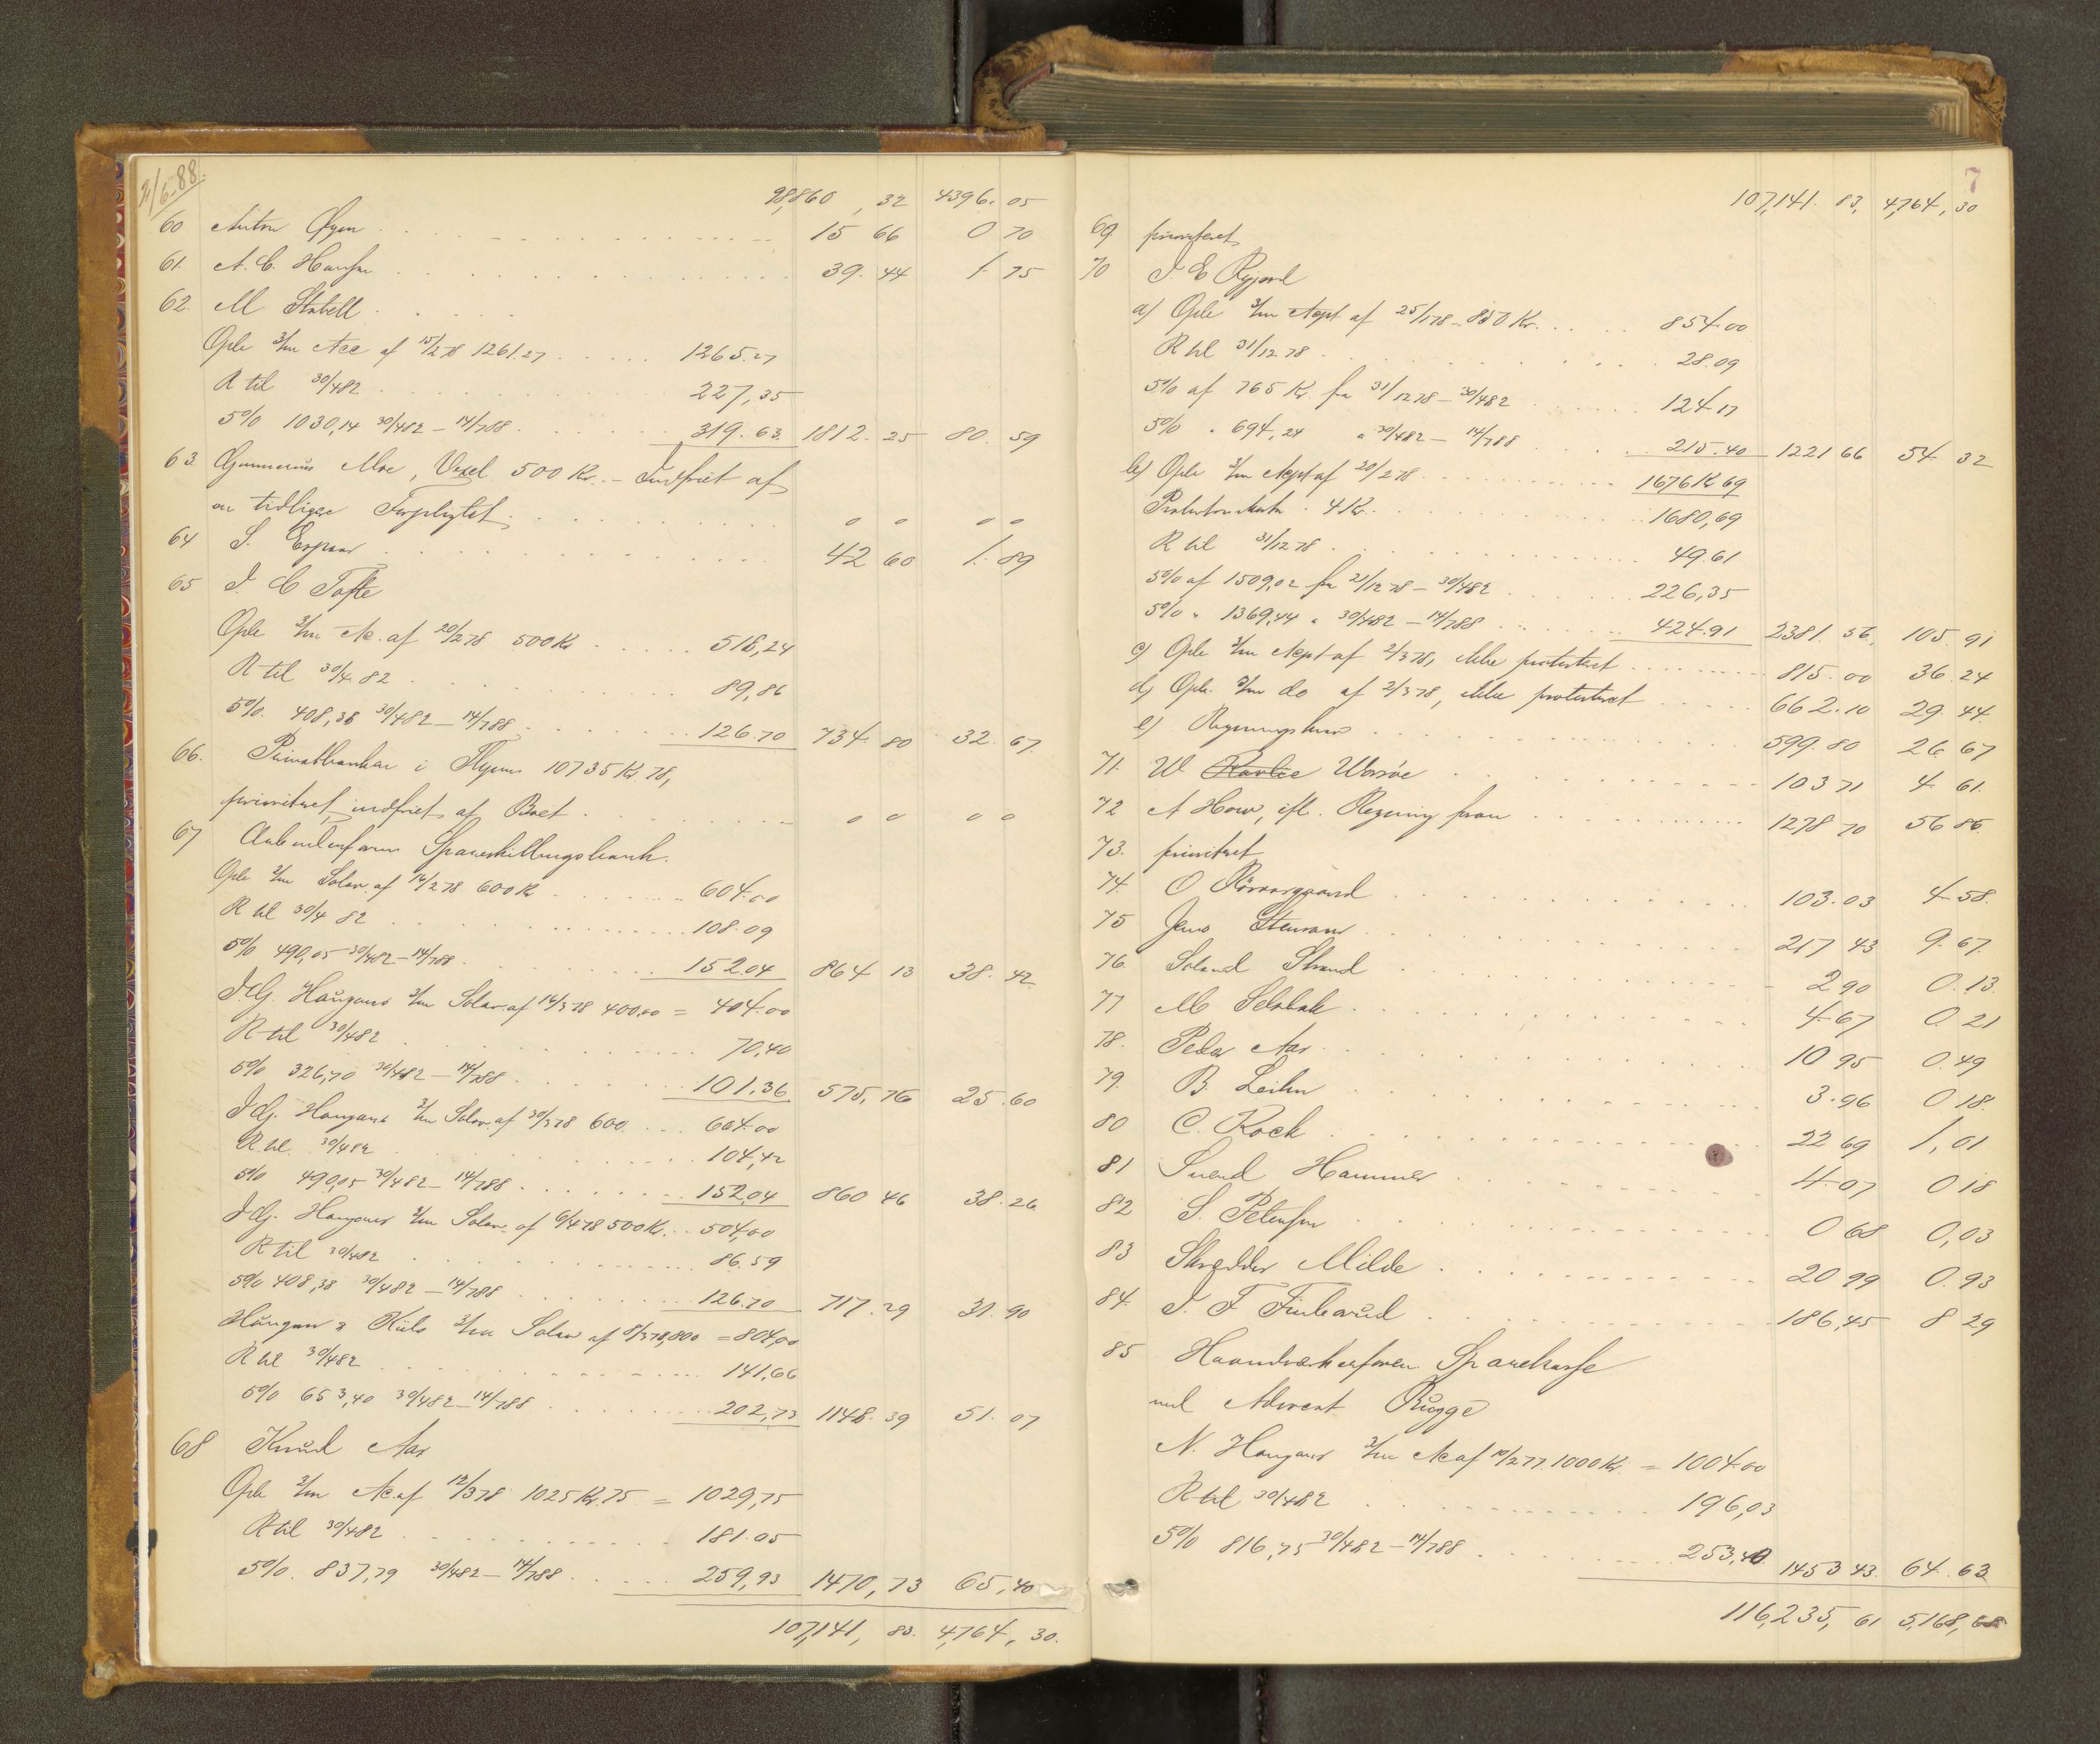 2/6-88.
98,860,32 4396.05
60 Anton Øyen 15 66 0 70
61. A. C. Hansen 39.44 1.75
62. M Stabell
Opl 3/m Acc af 15/2 78 1261.27 1265.27
R til 30/4 82 227,35
5% 1030,14 30/4 82 - 14/7 88 319.63 1812.25 80.59
63 Gunnerius Moe, Vexel 500 Kr. - Indfriet af
en tidligere Forpligtet 0 0 0 0
64 S. Espaas 42 60 1.89
65 J. C Tofte
Opl 3/m Ac. af 20/2 78 500 Kr 516,24
R til 30/4 82 89,86
5% 408,38 30/4 82 - 14/7 88 126.70 734.80 32.67.
66. Privatbanken i 10735 Kr. 78,
prioriteret, indfriet af Boet 0 0 0 0
67 Spareskillingsbank.
Opl 3/m Solav. af 14/2 78 600 K 604.00
R til 30/4 82 108.09
5% 490,05 30/4 82 - 14/7 88 152.04 864 13 38.42
J. G. Haugans 3/m Solav. af 16/3 78 400,00 = 404.00
R til 30/4 82 70,40
5% 326,70 30/4 82 - 14/7 88 101,36 575,76 25.60
J G. Haugans 3/m Solav. af 30/3 78 600. 604.00
R. til. 30/4 82 104,42
5% 490,05 30/4 82 - 14/7 88 152,04 860 46 38.26
J G. Haugans 3/m Solav. af 6/4 78 500 Kr. 504,00
R til 30/4 82 86.59
5% 408,38 30/4 82 - 14/7 88 126.70 717.29 31.90
Haugan & Kiils 3/m Solav af 8/3 78, 800 = 804,00
R til 30/4 82 141,66
5% 653,40 30/4 82 - 14/7 88 202,73 1148.39 51.07
68 Knud Aas
Opl 3/m Ac. af 12/3 78 1025 Kr. 75 = 1029,75
R til 30/4 82 181.05
5%. 837,79 30/4 82 - 14/7 88 259,93 1470,73 65,40
107,141,83. 4,764,30.
7
107,141.83, 4,764,30
69 prioriteret
70 J. E Rygaard
a) Opl 3/m Acpt af 25/1 78 - 850 Kr. 854.00
R til 31/12 78 28.09
5% af 765 Kr. fra 31/12 78 - 30/4 82 124.17
5% " 694,24 " 30/4 82 - 14/7 88 215.40 1221 66 54 32
b) Opl 3/m Acpt af 20/2 78 1676 Kr 69
4 Kr. 1680,69
R til 31/12 78 49.61
5% af 1509,02 fra 31/12 78 - 30/4 82 226,35
5% " 1369,44 " 30/4 82 - 14/7 88 424.91 2381.56, 105.91
c) Opl 3/m Acpt af 2/3 78, ikke protesteret 815.00 36.24
d) Opl. 3/m do af 2/3 78, ikke protesteret 662.10 29.44.
e) Regningskrav 599.80 26.67
71. W Worsøe 103 71 4 61.
72 A Horn, ifl. Regning 1278 70 56 85
73. prioriteret
74. O 103.03 4.58.
75 Jens Stensaas 217 43 9.67.
76. Strand 2 90 0.13.
77 M Selsbak 4.67 0.21
78. Peder Aas 10 95 0.49
79. B. 3.96 0 18.
80 C. Kock 22 69 1,01
81 Svend Hammer 4.07 0 18
82 S. Petersen 0 68 0,03
83 Skrædder Milde 20 99 0.93
84. J. F 186,45 8 29
85 Haandværkerforen. Sparekasse
ved Advocat Bugge
N. Haugans 3/m Ac af 10/2 77. 1000 Kr. = 1004.00
R til 30/4 82 196,03
5% 816,75 30/4 82 - 14/7 88 253,40 1453 43. 64.63
116,235,61 5,168,68